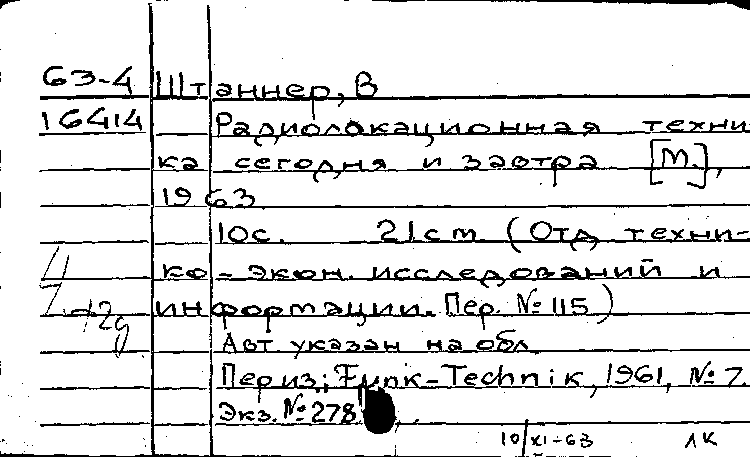 63-4 Штаннер, В
16414 Радиолокационная техни-
ка сегодня и завтра [М.],
1963
10с. 21см (Отд техни-
ко-экон. исследований и
информации. Пер. № 115)
Авт. указан на обл.
Пер из.: Funk-Technik, 1961, № 7.
Экз. № 278
10/XI-63 ЛК